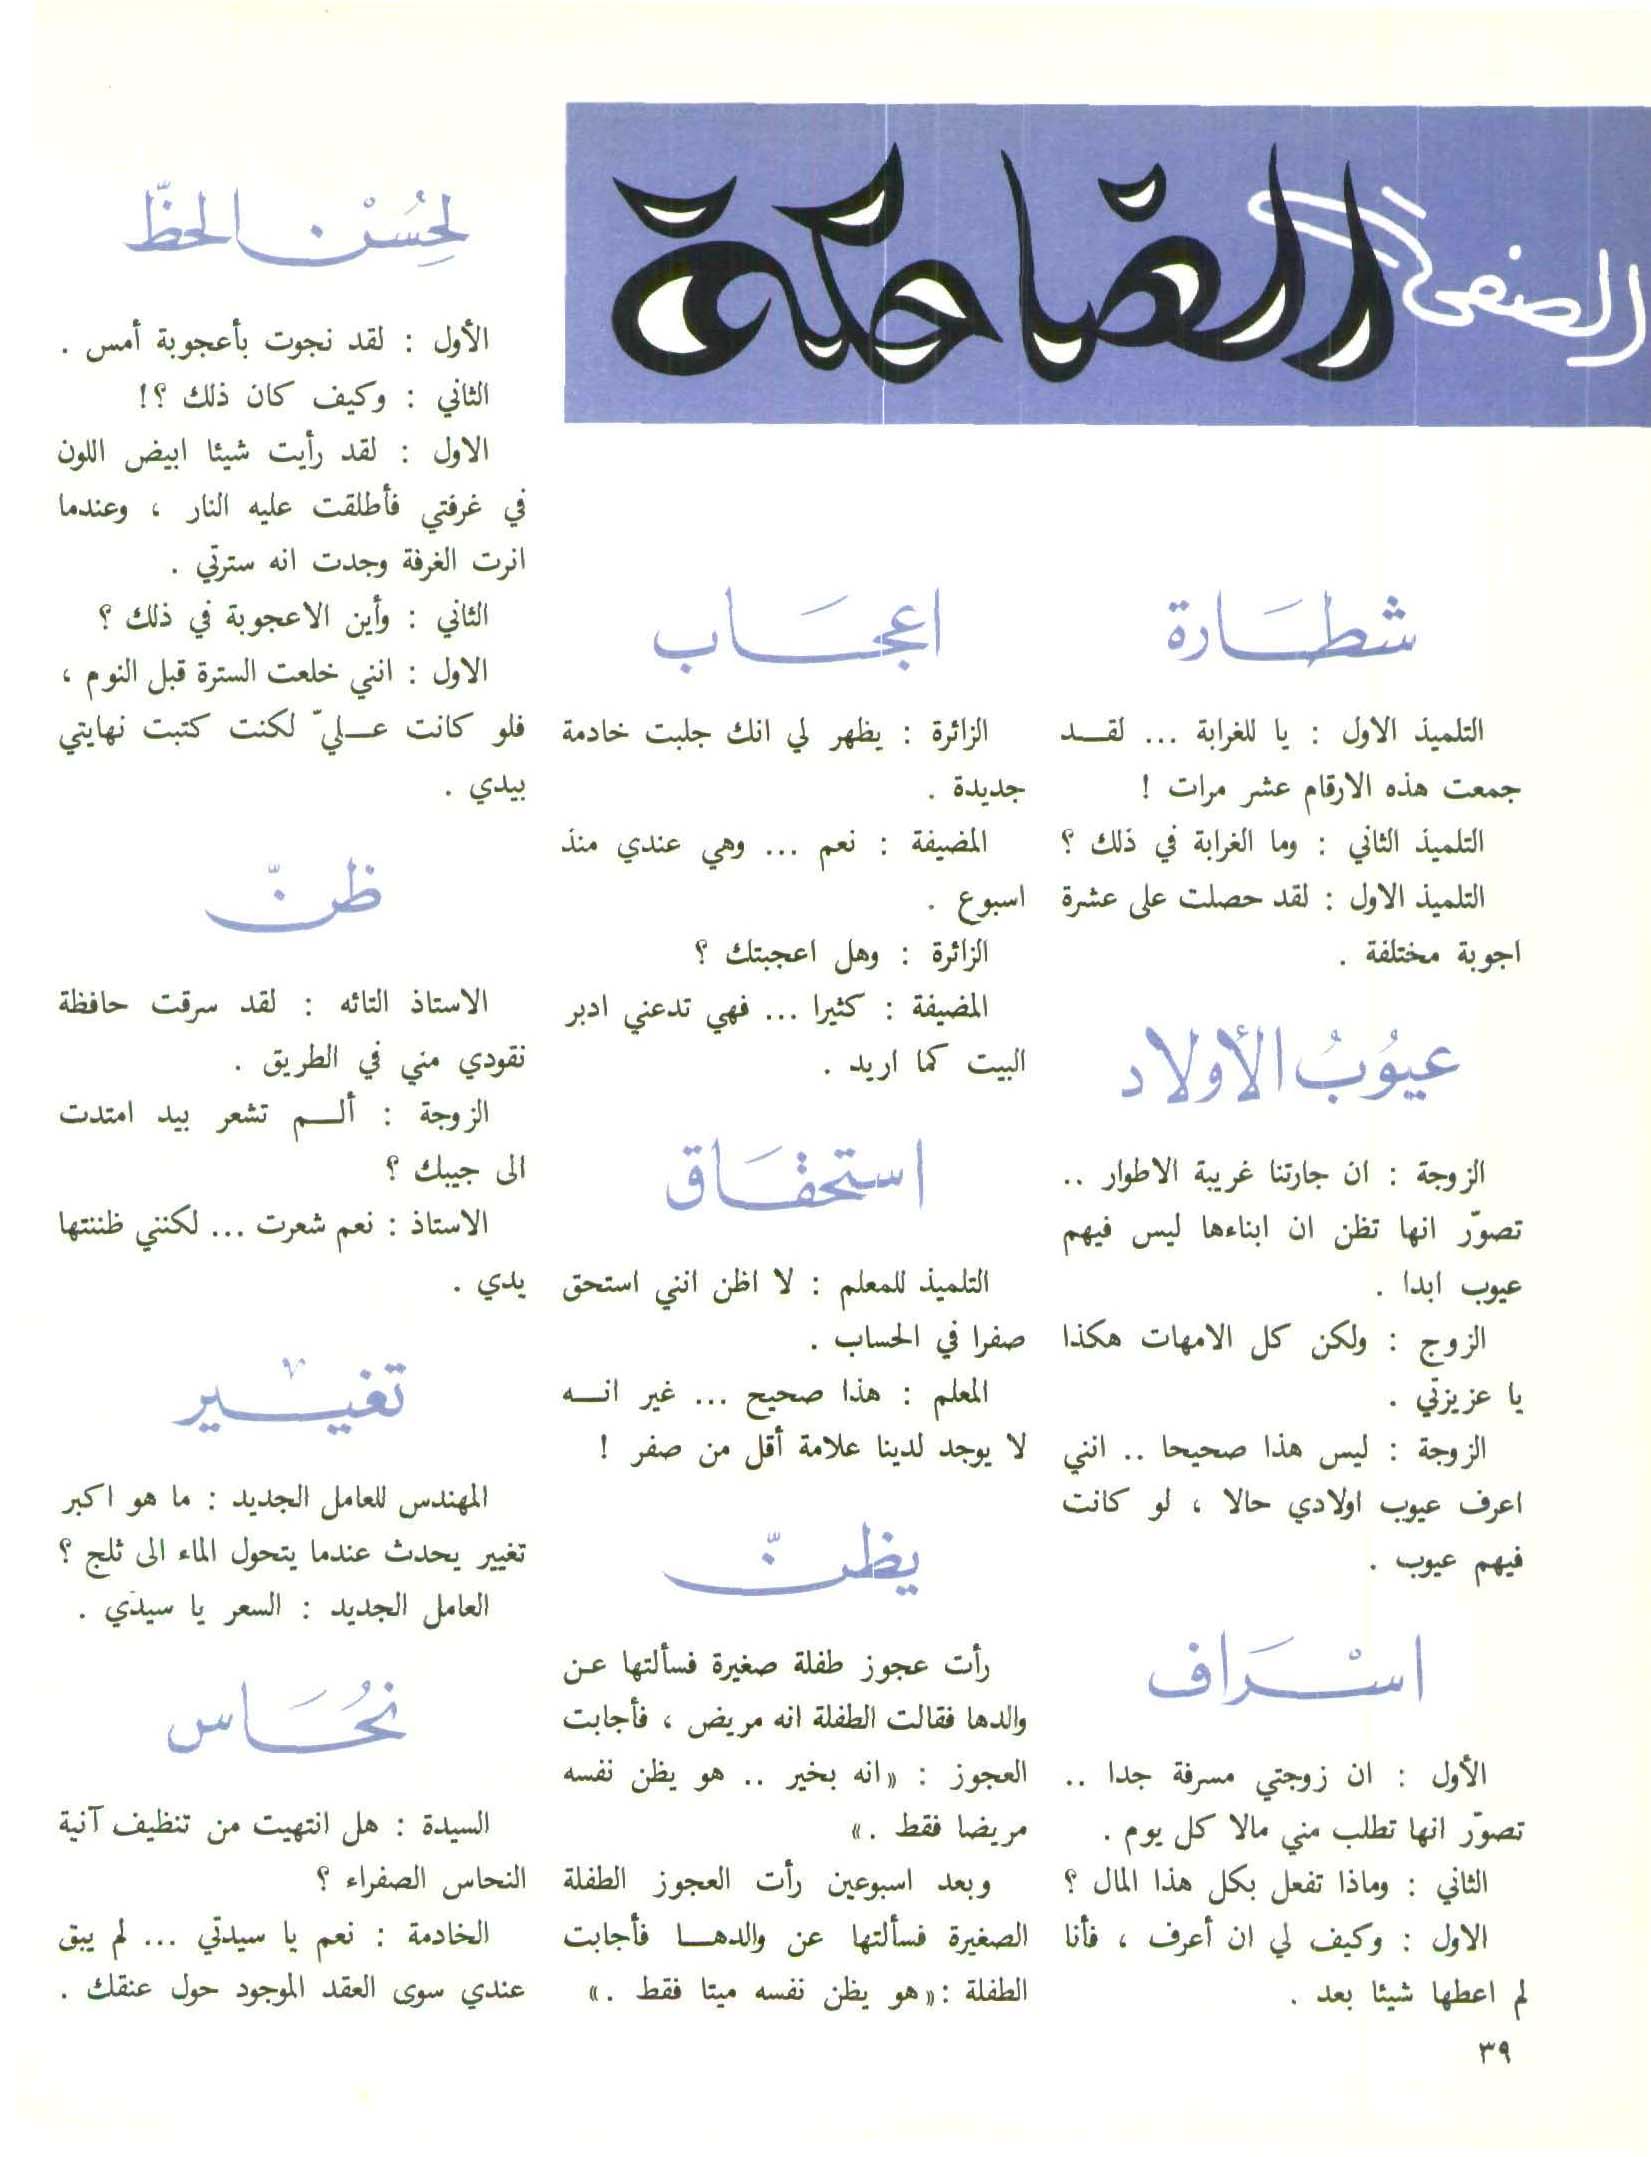 الصفحة الضاحكة
شطارة
التلميذ الاول : يا للغرابة ... لقـــد
جمعت هذه الارقام عشر مرات !
التلميذ الثاني : وما الغرابة في ذلك ؟
التلميذ الاول : لقد حصلت على عشرة
اجوبة مختلفة .
عيُوبُ الأولاد
الزوجة : ان جارتنا غريبة الاطوار ..
تصوّر انها تظن ان ابناءها ليس فيهم
عيوب ابدا .
الزوج : ولكن كل الامهات هكذا
يا عزيزتي .
الزوجة : ليس هذا صحيحا .. انني
اعرف عيوب اولادي حالا ، لو كانت
فيهم عيوب .
اسْرَاف
الأول : ان زوجتي مسرفة جدا ..
تصوّر انها تطلب مني مالا كل يوم .
الثاني : وماذا تفعل بكل هذا المال ؟
الاول : وكيف لي ان أعرف ، فأنا
لم اعطها شيئا بعد .
اعجَاب
الزائرة : يظهر لي انك جلبت خادمة
جديدة .
المضيفة : نعم ... وهي عندي منذ
اسبوع .
الزائرة : وهل اعجبتك ؟
المضيفة : كثيرا ... فهي تدعني ادبر
البيت كما اريد .
استحقَاق
التلميذ للمعلم : لا اظن انني استحق
صفرا في الحساب .
المعلم : هذا صحيح ... غير انـــه
لا يوجد لدينا علامة أقل من صفر !
يظنّ
رأت عجوز طفلة صغيرة فسألتها عـن
والدها فقالت الطفلة انه مريض ، فأجابت
العجوز : «انه بخير .. هو يظن نفسه
مريضا فقط .»
وبعد اسبوعين رأت العجوز الطفلة
الصغيرة فسألتها عن والدهـــا فأجابت
الطفلة :«هو يظن نفسه ميتا فقط .»
لحِسُنْ الحظّ
الأول : لقد نجوت بأعجوبة أمس .
الثاني : وكيف كان ذلك ؟!
الاول : لقد رأيت شيئا ابيض اللون
في غرفتي فأطلقت عليه النار ، وعندما
انرت الغرفة وجدت انه سترتي .
الثاني : وأين الاعجوبة في ذلك ؟
الاول : انني خلعت السترة قبل النوم ،
فلو كانت عـــليّ لكنت كتبت نهايتي
بيدي .
ظنّ
الاستاذ التائه : لقد سرقت حافظة
نقودي مني في الطريق .
الزوجة : ألـــم تشعر بيد امتدت
الى جيبك ؟
الاستاذ : نعم شعرت ... لكنني ظننتها
يدي .
تغيـير
المهندس للعامل الجديد : ما هو اكبر
تغيير يحدث عندما يتحول الماء الى ثلج ؟
العامل الجديد : السعر يا سيدي .
نحُاس
السيدة : هل انتهيت من تنظيف آنية
النحاس الصفراء ؟
الخادمة : نعم يا سيدتي ... لم يبق
عندي سوى العقد الموجود حول عنقك .
٣٩